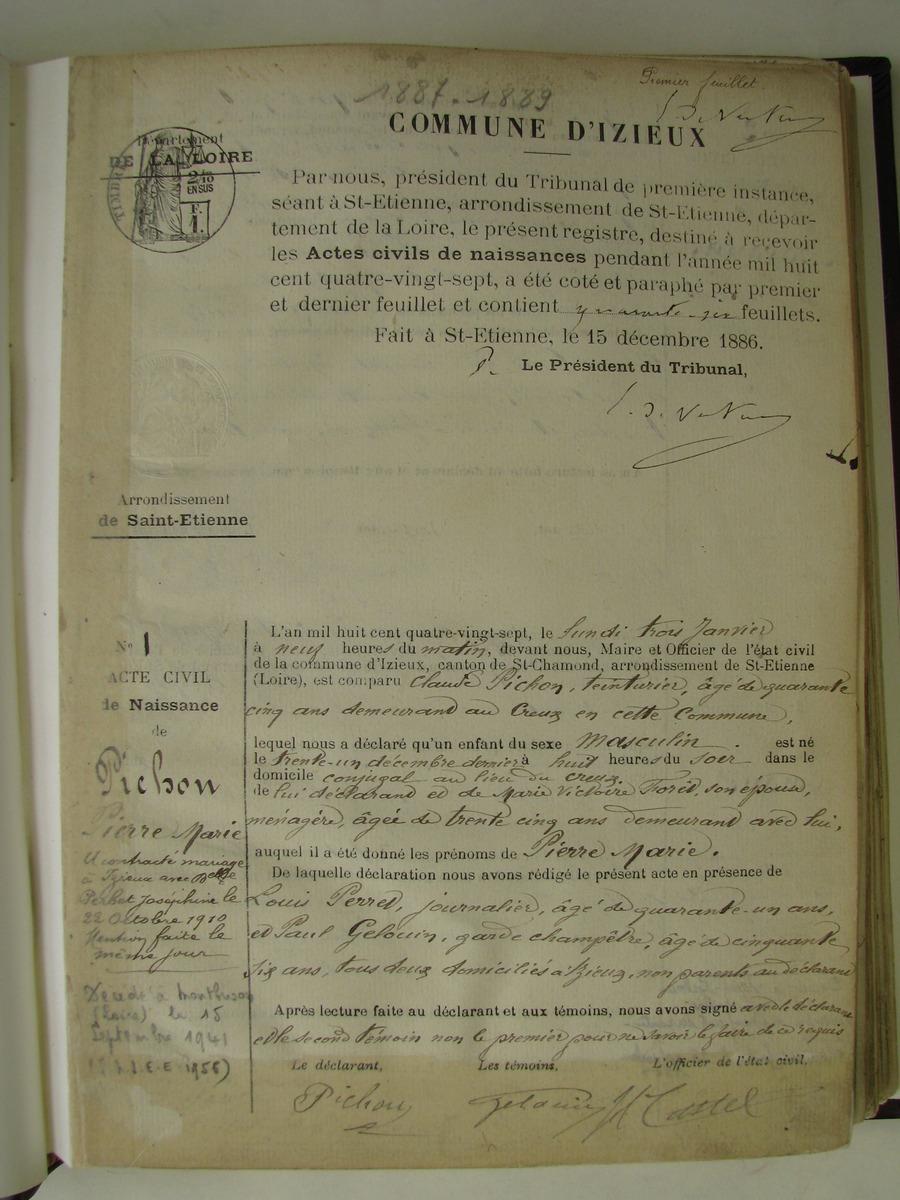 Premier feuillet
1887-1889
COMMUNE D'IZIEUX
Département
DE LA LOIRE
TIMBRE
2/10
EN SUS
F.
1.
Par nous, président du Tribunal de première instance,
séant à St-Etienne, arrondissement de St-Etienne, dépar-
tement de la Loire, le présent registre, destiné à recevoir
les Actes civils de naissances pendant l'année mil huit
cent quatre-vingt-sept, a été coté et paraphé par premier
et dernier feuillet et contient quarante-six feuillets.
Fait à St-Etienne, le 15 décembre 1886.
P. Le Président du Tribunal,
Arrondissement
de Saint-Etienne
No 1
ACTE CIVIL
de Naissance
de
Pichon
Pierre Marie
A contracté mariage
à Izieux avec Delle
Perbet Joséphine le
22 Octobre 1910
Mention faite le
même jour
Décédé à Montbrison
(Loire) le 15
Septembre 1941
(I.E.E 1956)
L'an mil huit cent quatre-vingt-sept, le lundi trois Janvier
à neuf heures du matin, devant nous, Maire et Officier de l'état civil
de la commune d'Izieux, canton de St-Chamond, arrondissement de St-Etienne
(Loire), est comparu Claude Pichon, teinturier, âgé de quarante
cinq ans demeurant au Creux en cette Commune,
lequel nous a déclaré qu'un enfant du sexe Masculin. est né
le trente-un décembre dernier à huit heures du soir dans le
domicile conjugal au lieu du Creux.
de lui déclarant et de Marie Victoire Forêt, son épouse,
menagère, âgée de trente cinq ans demeurant avec lui,
auquel il a été donné les prénoms de Pierre Marie.
De laquelle déclaration nous avons rédigé le présent acte en présence de
Louis Perret, journalier, âgé de quarante-un ans,
et Paul Gelouin, garde champêtre, âgé de cinquante
six ans, tous deux domiciliés à Izieux, non parents au déclarant
Après lecture faite au déclarant et aux témoins, nous avons signé avec le déclarant
et le second témoin non le premier pour ne savoir le faire de ce requis
Le déclarant, Les témoins, L'officier de l'état civil.
Pichon Gelouin Castel